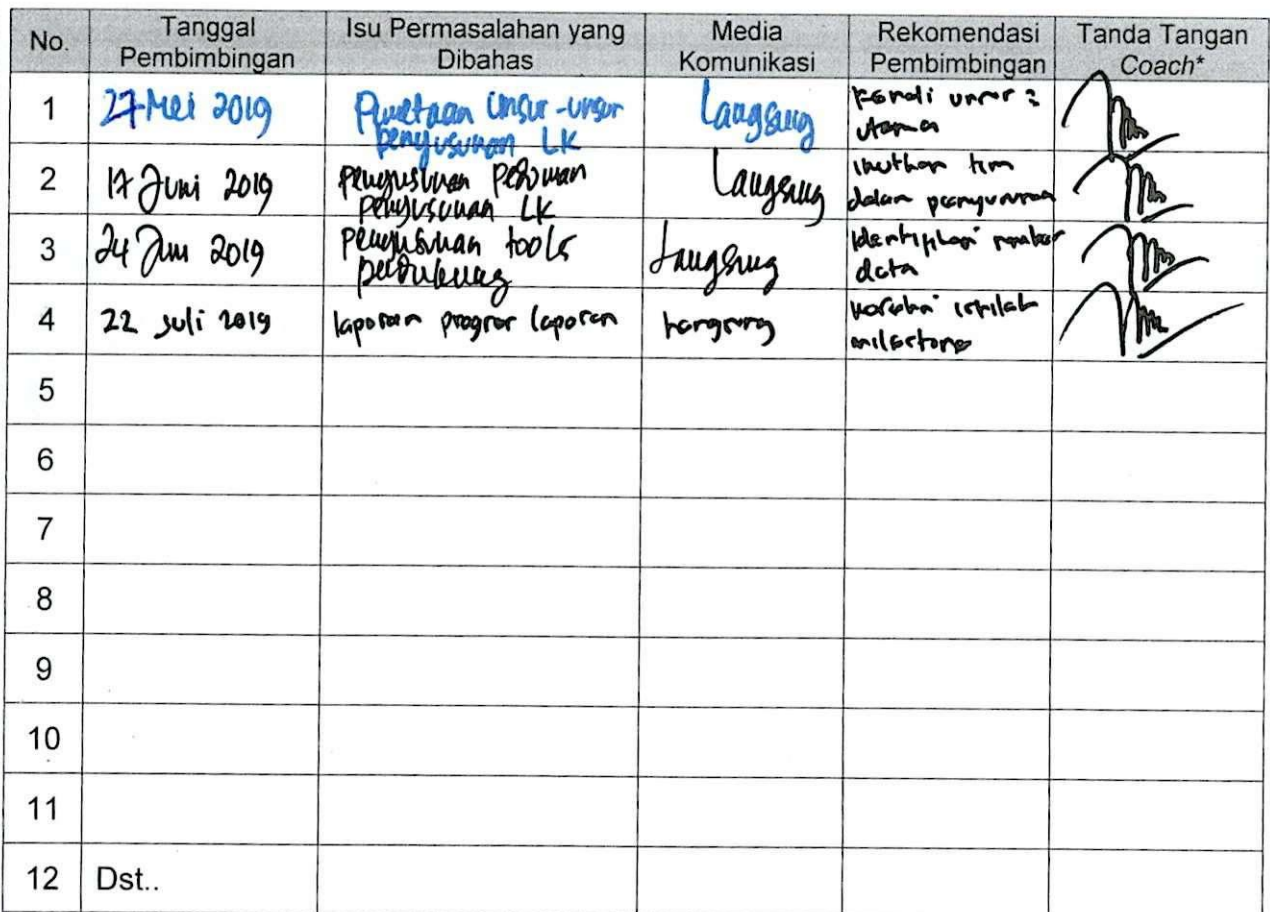 No. Tanggal Pembimbingan Isu Permasalahan yang Dibahas Media Komunikasi Rekomendasi Pembimbingan Tanda Tangan Coach*
1 27 Mei 2019 Pemetaan unsur-unsur penyusunan LK Langsung unsur2 utama
2 17 Juni 2019 penyusunan pedoman penyusunan LK Langsung ikutkan tim dalam penyusunan
3 24 Juni 2019 penyusunan tools pendukung Langsung identifikasi data
4 22 Juli 2019 laporan progres laporan langsung istilah milestone
5
6
7
8
9
10
11
12 Dst..